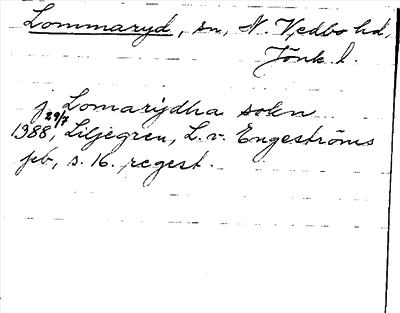 Lommaryd, sn, N. Vedbo hd,
Jönk. l.
j Lomarydha sokn
29/7
1388, Liljegren, L. v. Engeströms
pb, s. 16. regest.